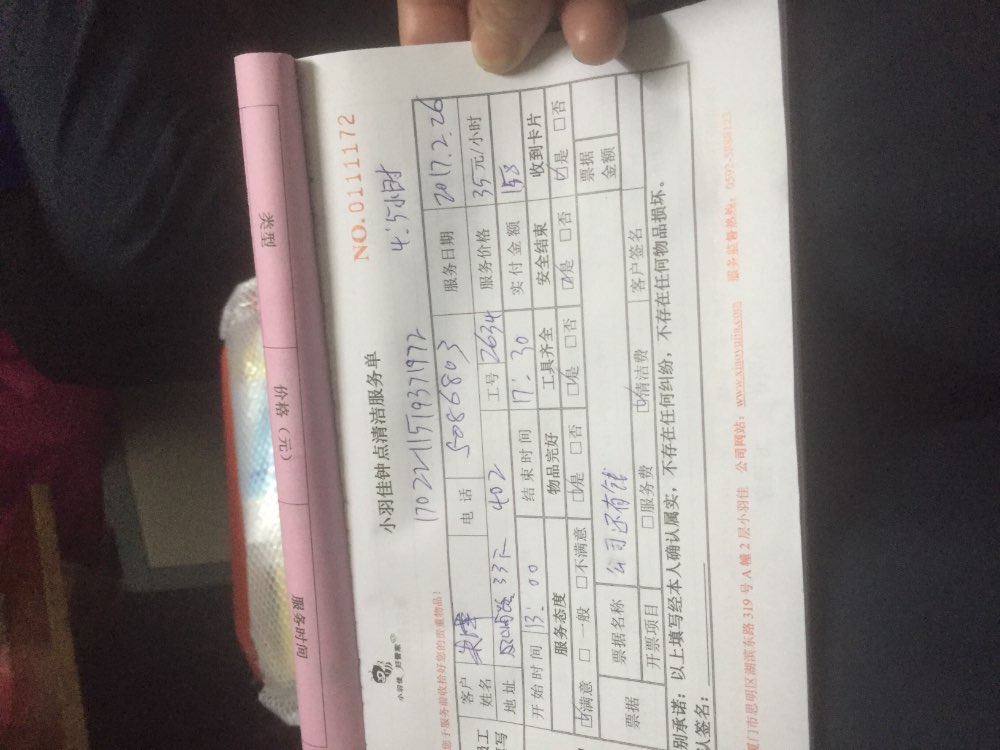 类型
价格（元）
服务时间
NO.0111172
小羽佳钟点清洁服务单
小羽佳 好管家
1702211519371972 4.5小时
您于服务前收拾好您的贵重物品!
客户姓名 电话 5086803 服务日期 2017.2.26
地址 33 402 工号 2634 服务价格 35元/小时
开始时间 13:00 结束时间 17:30 实付金额 158
服务态度 物品完好 工具齐全 安全结束 收到卡片
☑满意 □一般 □不满意 ☑是 □否 ☑是 □否 ☑是 □否 ☑是 □否
票据 票据名称 公司还有钱 票据金额
开票项目 □服务费 ☑清洁费 客户签名
别承诺：以上填写经本人确认属实，不存在任何纠纷，不存在任何物品损坏。
认签名：
厦门市思明区湖滨东路 319 号 A 幢 2 层小羽佳 公司网站：www.xiaoyujia.com 服务监督热线：